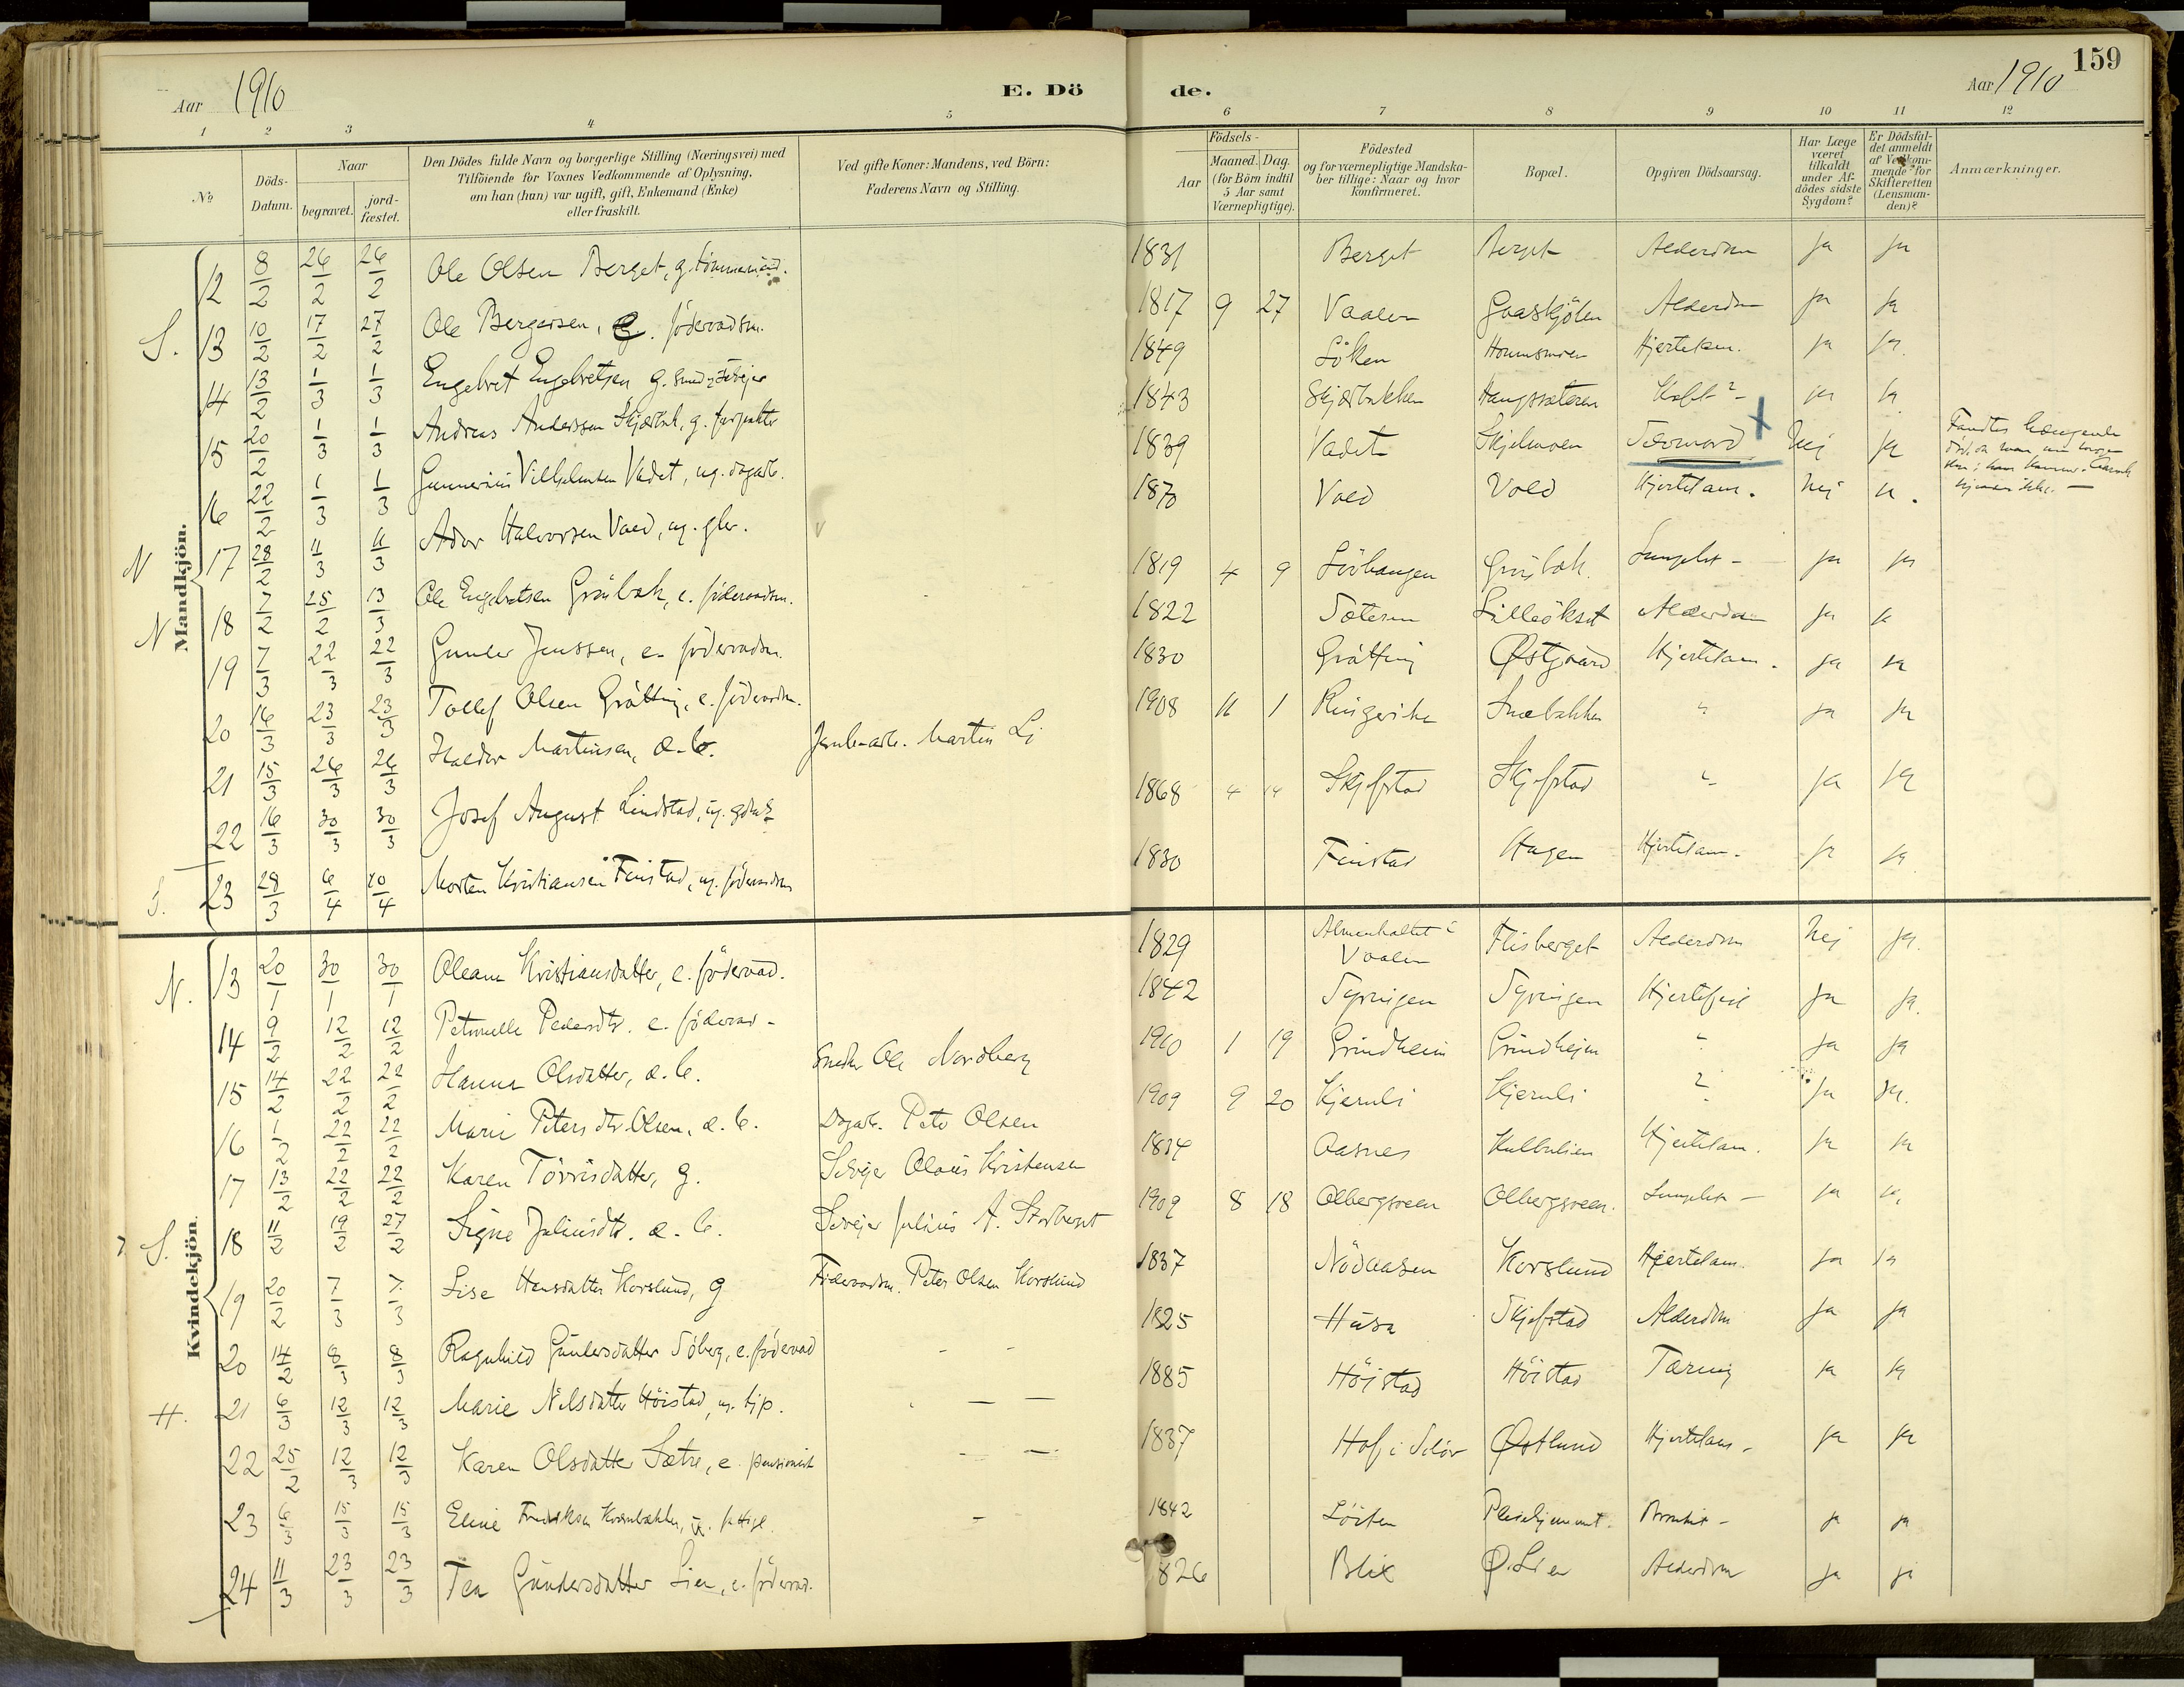 159
Aar 1910
E. Döde.
Aar 1910
1 2 3 4 5 6 7 8 9 10 11 12
№
Döds-Datum.
Naar
begravet.
jord-fæstet.
Den Dödes fulde Navn og borgerlige Stilling (Næringsvei) med
Tilföiende for Voxnes Vedkommende af Oplysning,
om han (hun) var ugift, gift, Enkemand (Enke)
eller fraskilt.
Ved gifte Koner: Mandens, ved Börn:
Faderens Navn og Stilling.
Födsels-
Aar
Maaned. Dag.
(for Börn indtil
5 Aar samt
Værnepligtige).
Födested
og for værnepligtige Mandska-
ber tillige: Naar og hvor
Konfirmeret.
Bopæl.
Opgiven Dödsaarsag.
Har Læge
været
tilkaldt
under Af-
dödes sidste
Sygdom?
Er Dödsfal-
det anmeldt
af Vedkom-
mende for
Skifteretten
(Lensman-
den)?
Anmærkninger.
Mandkjön.
12 8/2 26/2 26/2 Ole Olsen Berget, g. 1831 Berget Berget Alderdom ja ja
S. 13 10/2 17/2 27/2 Ole Bergersen, e. föderaadsm. 1817 9 27 Vaaler Gaaskjölen Alderdom ja ja
14 13/2 1/3 1/3 Engebret Engebretsen g. 1849 Löken ja ja
15 20/2 1/3 1/3 Andreas Anderssen Skjærbak, g. 1843 Skjærbakken Haugsæteren ja ja
16 22/2 1/3 1/3 Gunnerius Vilhelmsen Vadet, ug. dagarb. 1839 Vadet Skjelmoen Selvmord X Nej ja Fandtes hængende
17 28/2 11/3 11/3 Halvorsen Vold, ug. 1870 Vold Vold Hjertelam. Nej ja.
N 18 7/2 25/2 13/3 Ole Engebretsen Gröibak, e. föderaadsm. 1819 4 9 Lövhaugen Gröibak. ja ja
19 7/3 22/3 22/3 Gunder Jenssen, e. föderaadsm. 1822 Sæteren Lilleökset Alderdom ja ja
20 16/3 23/3 23/3 Tollef Olsen Gråtting, e. föderaadsm. 1830 Gråtting Østgaard Hjertelam. ja ja
21 15/3 26/3 26/3 Haldor Martinsen, æ. b. Martin Li 1908 11 1 Ringerike Snæbakken " ja ja
22 16/3 30/3 30/3 Josef August Lindstad, ug. 1868 4 14 Skjefstad Skjefstad " ja ja
S. 23 28/3 6/4 10/4 Morten Kristiansen Finstad, ug. föderaadsm 1830 Finstad Hagen Hjertelam. ja ja
Kvindekjön.
N. 13 20/1 30/1 30/1 Oleana Kristiansdatter, e. föderaad. 1829 Vaaler Flisberget Alderdom Nej ja.
14 9/2 12/2 12/2 Petronelle Pedersdtr. e. föderaad- 1842 Syringen Syringen Hjertefeil ja ja.
15 14/2 22/2 22/2 Hanna Olsdatter, æ. b. Snedker Ole Nordberg 1910 1 19 Grindheim Grindhejm " ja ja
16 1/2 22/2 22/2 Marie Petersdtr. Olsen, æ. b. Dagarb. Peter Olsen 1909 9 20 Kjernli Kjernli ? ja ja.
17 13/2 22/2 22/2 Karen Törrisdatter, g. Selvejer Olaus Kristensen 1834 Aasnes Hjertelam. ja ja
S. 18 11/2 19/2 27/2 Signe Juliusdtr. æ. b. Selvejer Julius A. Storberget 1909 8 18 Olbergsveen Olbergsveen. ja ja,
19 20/2 7/3 7/3 Lise Hansdatter Korslund, g Föderaadsm. Peter Olsen Korslund 1837 Nödaasen Korslund Hjertelam. ja ja
20 14/2 8/3 8/3 Ragnhild Gundersdatter Söberg, e. föderaad - - 1825 Husa Skjefstad Alderdom ja ja
H. 21 6/3 12/3 12/3 Marie Nilsdatter Höistad, ug. hjp. - - 1885 Höjstad Höistad Tæring ja ja
22 25/2 12/3 12/3 Karen Olsdatter Sætre, e. pensionist - - 1837 Hof i Solör Østlund Hjertelam. ja ja
23 6/3 15/3 15/3 Eline - 1842 Löiten Pleiehjemmet. ja ja
24 11/3 23/3 23/3 Tea Gundersdatter Lien, e. föderaad. 1826 Blix Ø. Lien Alderdom ja ja